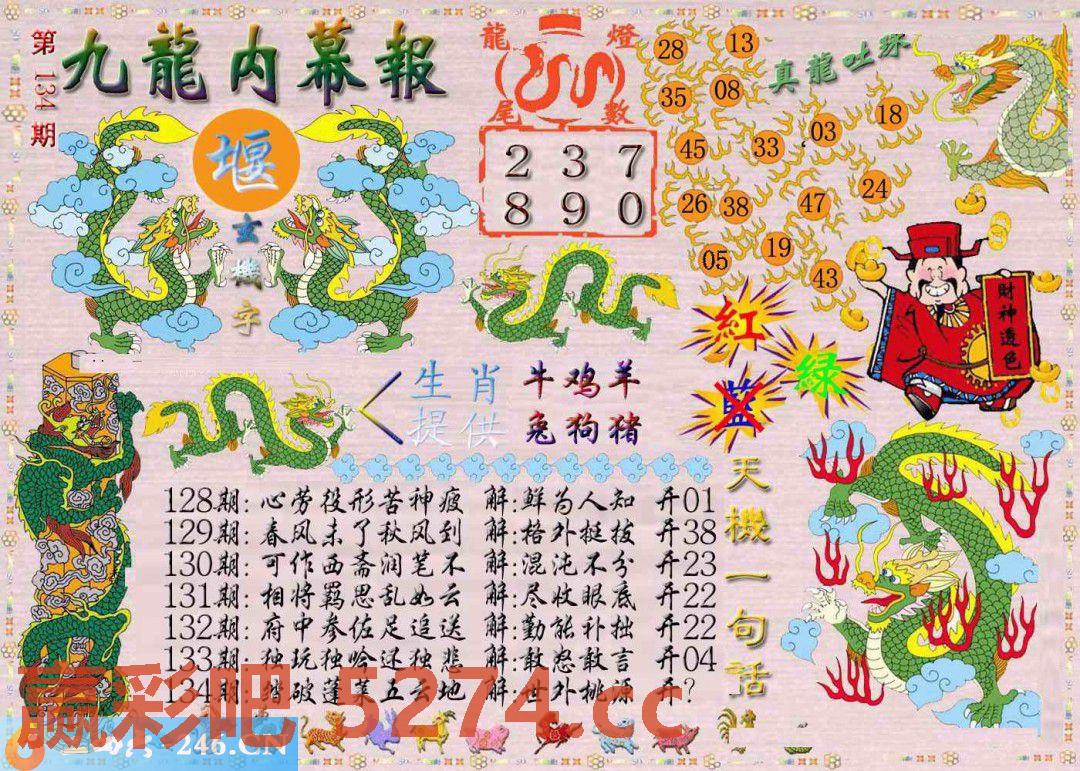 第134期
九龍内幕報
堰
玄機字
龍尾 燈數
2 3 7
8 9 0
真龍吐珠
28 13
35 08
45 33 03 18
26 38 47 24
05 19 43
紅
藍
绿
財神透色
生肖提供
牛鸡羊
兔狗猪
天機一句話
128期:心劳役形苦神疲 解:鲜为人知 开01
129期:春风未了秋风到 解:格外挺拔 开38
130期:可作西斋润笔不 解:混沌不分 开23
131期:相将羁思乱如云 解:尽收眼底 开22
132期:府中参佐足追送 解:勤能补拙 开22
133期:独玩独吟还独悲 解:敢怒敢言 开04
134期:踏破蓬莱五云地 解:世外桃源 开?
赢彩吧 5274.cc
246.CN